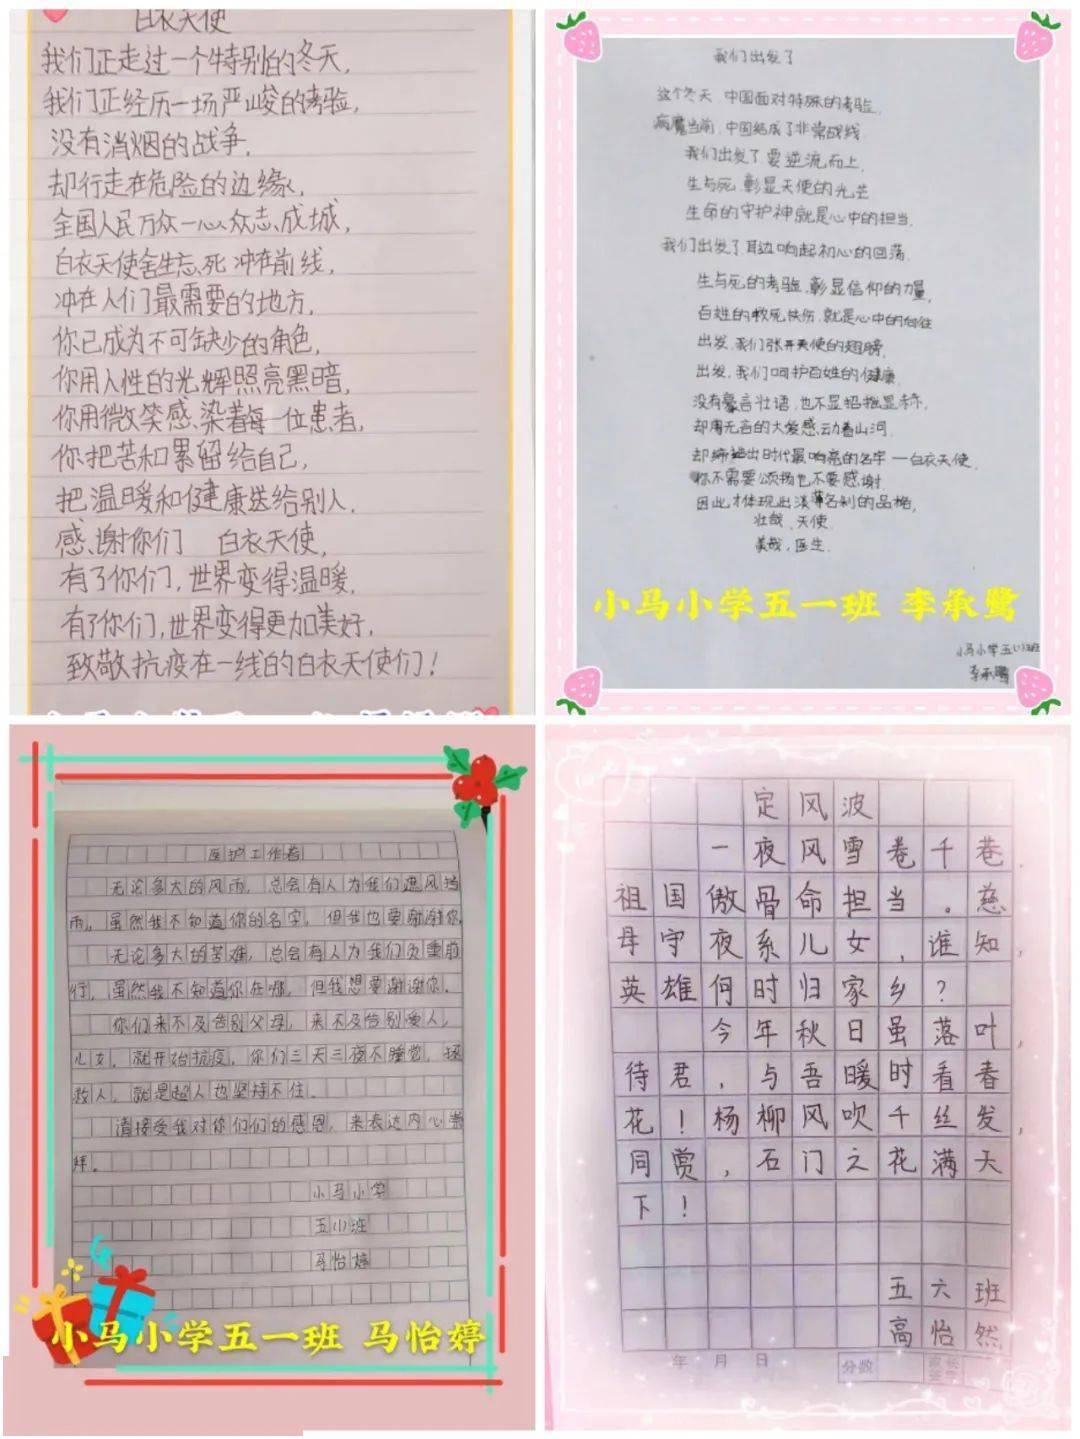 白衣天使
我们正走过一个特别的冬天,
我们正经历一场严峻的考验,
没有消烟的战争,
却行走在危险的边缘,
全国人民万众一心、众志成城,
白衣天使舍生忘死 冲在前线,
冲在人们最需要的地方,
你已成为不可缺少的角色,
你用人性的光辉照亮黑暗,
你用微笑感染着每一位患者,
你把苦和累留给自己,
把温暖和健康送给别人,
感谢你们 白衣天使,
有了你们,世界变得温暖,
有了你们,世界变得更加美好,
致敬抗疫在一线的白衣天使们!
我们出发了
这个冬天 中国面对特殊的考验,
病魔当前,中国结成了非常战线,
我们出发了 要逆流而上,
生与死,彰显天使的光芒
生命的守护神就是心中的担当,
我们出发了,耳边响起初心的回荡,
生与死的考验,彰显信仰的力量,
百姓的救死扶伤,就是心中的向往
出发,我们张开天使的翅膀,
出发,我们呵护百姓的健康,
没有豪言壮语,也不显招摇显赤,
却用无言的大爱感动着山河,
却缔造出时代最响亮的名字一白衣天使,
你不需要颂扬也不要感谢,
因此才体现出淡薄名利的品格,
壮哉,天使,
美哉,医生,
小马小学五一班 李承鹭
小马小学五(1)班
李承鹭
医护工作者
无论多大的风雨,总会有人为我们遮风挡
雨,虽然我不知道你的名字,但我也要谢谢你,
无论多大的苦难,总会有人为我们负重前
行,虽然我不知道你在哪,但我想要谢谢你。
你们来不及告别父母,来不及告别爱人,
儿女,就开始抗疫,你们三天三夜不睡觉,拯
救人,就是超人也坚持不住。
请接受我对你们们的感恩,来表达内心崇
拜。
小马小学
五(1)班
马怡婷
小马小学五一班 马怡婷
定风波
一夜风雪卷千巷,
祖国傲骨命担当。慈
母守夜系儿女,谁知,
英雄何时归家乡?
今年秋日虽落叶,
待君,与吾暖时看春
花!杨柳风吹千丝发,
同赏,石门之花满天
下!
五六班
高怡然
年 月 日 分数